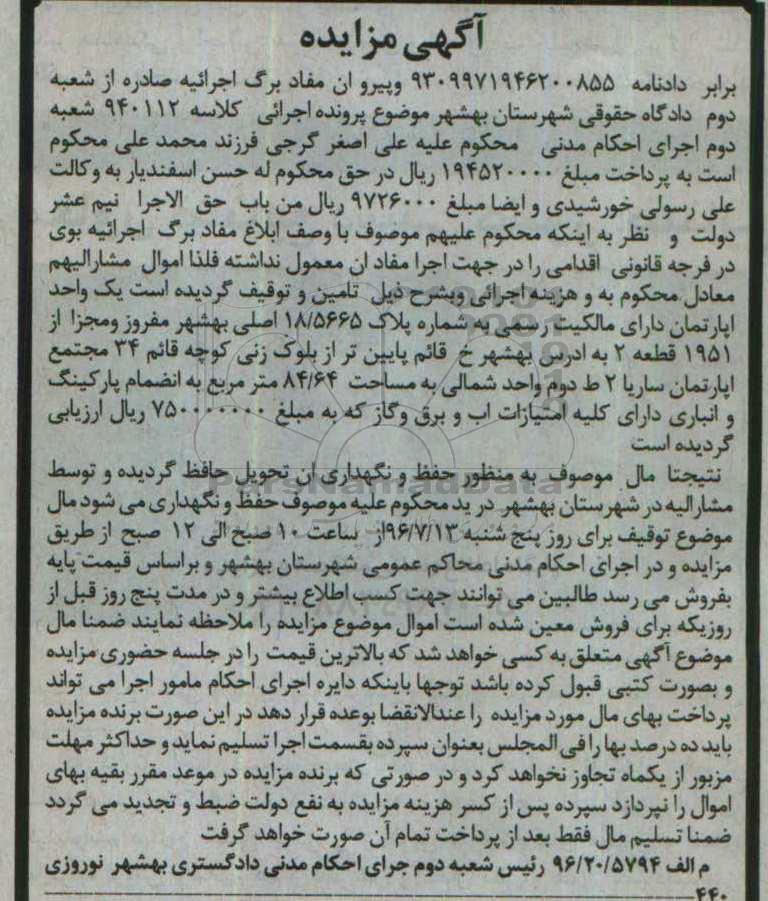 آگهی مزایده
برابر دادنامه ۹۳۰۹۹۷۱۹۴۶۲۰۰۸۵۵ وپیرو ان مفاد برگ اجرائیه صادره از شعبه
دوم دادگاه حقوقی شهرستان بهشهر موضوع پرونده اجرائی کلاسه ۹۴۰۱۱۲ شعبه
دوم اجرای احکام مدنی محکوم علیه علی اصغر گرجی فرزند محمد علی محکوم
است به پرداخت مبلغ ۱۹۴۵۲۰۰۰۰ ریال در حق محکوم له حسن اسفندیار به وکالت
علی رسولی خورشیدی و ایضا مبلغ ۹۷۲۶۰۰۰ ریال من باب حق الاجرا نیم عشر
دولت و نظر به اینکه محکوم علیهم موصوف با وصف ابلاغ مفاد برگ اجرائیه بوی
در فرجه قانونی اقدامی را در جهت اجرا مفاد ان معمول نداشته فلذا اموال مشارالیهم
معادل محکوم به و هزینه اجرائی وبشرح ذیل تامین و توقیف گردیده است یک واحد
اپارتمان دارای مالکیت رسمی به شماره پلاک ۱۸/۵۶۶۵ اصلی بهشهر مفروز ومجزا از
۱۹۵۱ قطعه ۲ به ادرس بهشهر خ قائم پایین تر از بلوک زنی کوچه قائم ۳۴ مجتمع
اپارتمان ساریا ۲ ط دوم واحد شمالی به مساحت ۸۴/۶۴ متر مربع به انضمام پارکینگ
و انباری دارای کلیه امتیازات اب و برق وگاز که به مبلغ ۷۵۰۰۰۰۰۰۰ ریال ارزیابی
گردیده است
نتیجتا مال موصوف به منظور حفظ و نگهداری ان تحویل حافظ گردیده و توسط
مشارالیه در شهرستان بهشهر در ید محکوم علیه موصوف حفظ و نگهداری می شود مال
موضوع توقیف برای روز پنج شنبه ۹۶/۷/۱۳از ساعت ۱۰ صبح الی ۱۲ صبح از طریق
مزایده و در اجرای احکام مدنی محاکم عمومی شهرستان بهشهر و براساس قیمت پایه
بفروش می رسد طالبین می توانند جهت کسب اطلاع بیشتر و در مدت پنج روز قبل از
روزیکه برای فروش معین شده است اموال موضوع مزایده را ملاحظه نمایند ضمنا مال
موضوع آگهی متعلق به کسی خواهد شد که بالاترین قیمت را در جلسه حضوری مزایده
و بصورت کتبی قبول کرده باشد توجها باینکه دایره اجرای احکام مامور اجرا می تواند
پرداخت بهای مال مورد مزایده را عندالانقضا بوعده قرار دهد در این صورت برنده مزایده
باید ده درصد بها را فی المجلس بعنوان سپرده بقسمت اجرا تسلیم نماید و حداکثر مهلت
مزبور از یکماه تجاوز نخواهد کرد و در صورتی که برنده مزایده در موعد مقرر بقیه بهای
اموال را نپردازد سپرده پس از کسر هزینه مزایده به نفع دولت ضبط و تجدید می گردد
ضمنا تسلیم مال فقط بعد از پرداخت تمام آن صورت خواهد گرفت
م الف ۹۶/۲۰/۵۷۹۴ رئیس شعبه دوم جرای احکام مدنی دادگستری بهشهر نوروزی
۴۴۰
ParsNamadData